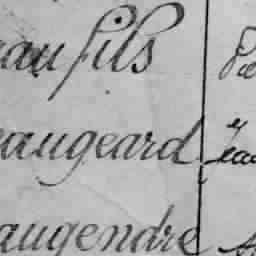 aufils
augeard
augendre